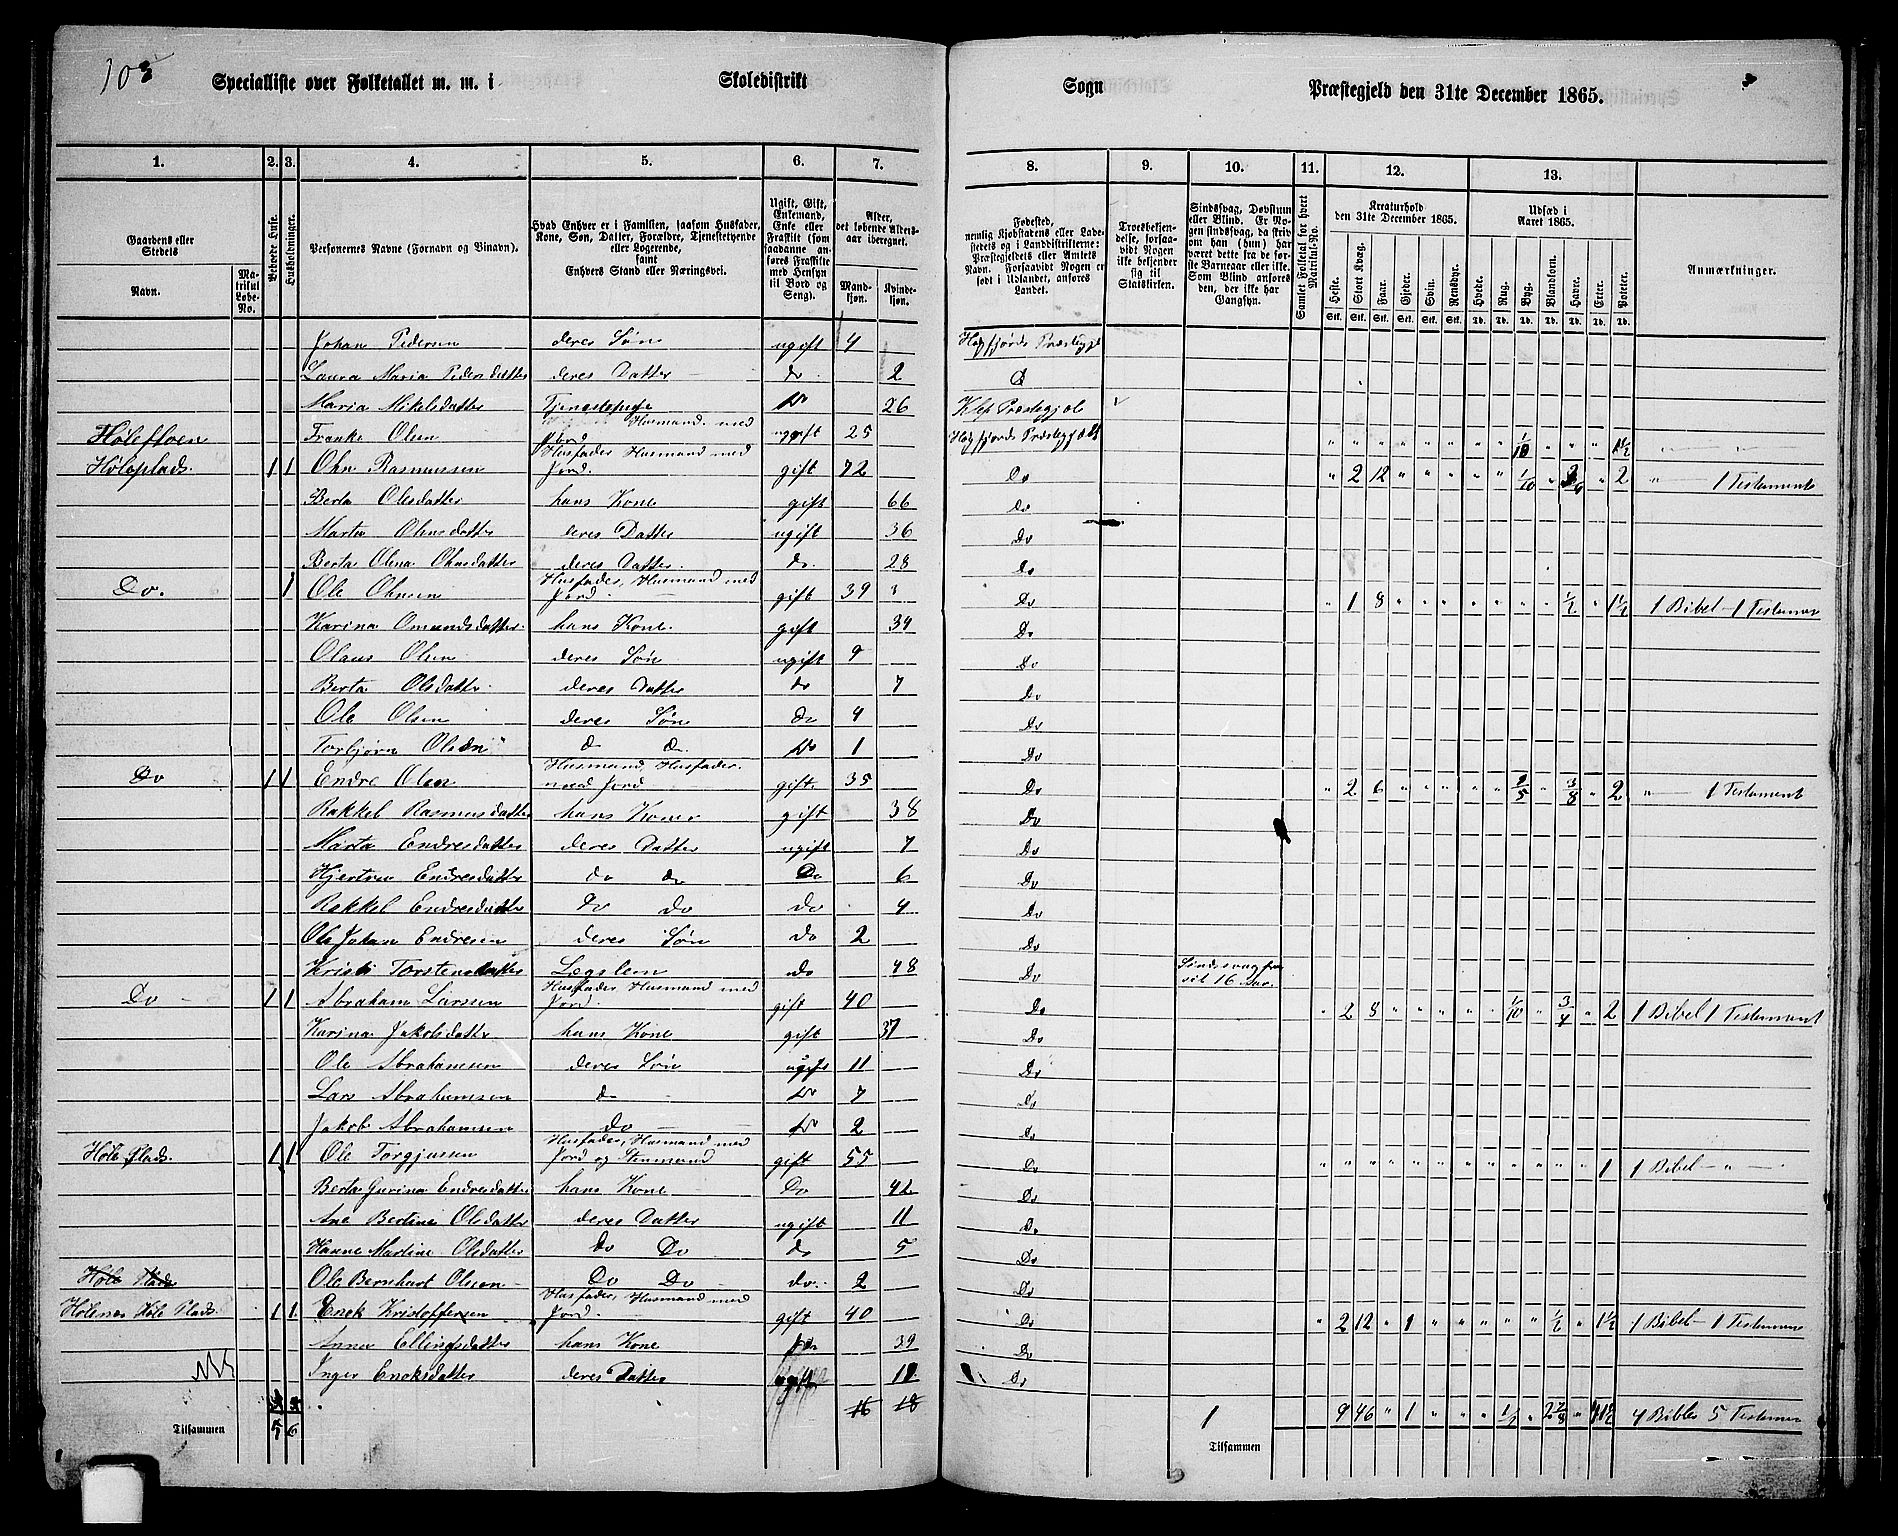 103
Specialliste over Folketallet m. m. i Skoledistrikt Sogn Præstegjeld den 31te December 1865.
1. 2. 3. 4. 5. 6. 7. 8. 9. 10. 11. 12. 13.
Gaardens eller Stedets Navn.
Matrikul Løbe-No.
Beboede Huse.
Husholdninger.
Personernes Navne (Fornavn og Vinavn).
Hvad Enhver er i Familien, saasom Husfader, Kone, Søn, Datter, Forældre, Tjenestetyende eller Logerende, samt Enhvers Stand eller Næringsvei.
Ugift, Gift, Enkemand, Enke eller Fraskilt (som saadanne anføres Fraskilte med Hensyn til Bord og Seng).
Alder, det løbende Aldersaar iberegnet.
Mandkjøn. Kvindekjøn.
Fødested, nemlig Kjøbstadens eller Ladestedets og i Landdistrikterne: Præstegjeldets eller Amtets Navn. Forsaavidt Nogen er født i Udlandet, anføres Landet.
Troesbekjendelse, forsaavidt Nogen ikke bekjender sig til Statskirken.
Sindssvag, Døvstum eller Blind. Er Nogen sindssvag, da skriv om han (hun) har været dette fra de første Barneaar eller ikke. Som Blind anføres den, der ikke har Gangsyn.
Samlet Folketal for hvert Matrikul-No.
Kreaturhold den 31te December 1865.
Heste. Stort Kvæg. Faar. Gjeder. Svin. Rensdyr.
Udsæd i Aaret 1865.
Hvede. Rug. Byg. Blandkorn. Havre. Erter. Poteter.
Anmærkninger.
Johan Pedersen deres Søn ugift 4 Høgsfjords Præstegje
Laura Maria Pedersdatter deres Datter do 2 D
Maria Mikelsdatter Tjenestepige Do 26 Klep Præstegjel
Høleffoen Franke Olsen Husmand med Jord ugift 25 Høgsfjords Præstegjeld 1/10 1 1/2
Høleplads 1 1 Ohn Rasmussen Husfader Husmand med Jord. gift 72 Do 2 12 1/10 2 1 Testament
Berta Olesdatter hans Kone gift 66 Do
Marta Ohnsdatter deres Datter ugift 36 Do
Berta Olena Ohnsdatter deres Datter do. 28 Do
Do. 1 Ole Ohnsen Husfader, Husmand med Jord. gift 39 Do 1 8 1/2 1 1/2 1 Bibel 1 Testamen
Karina Omundsdatter hans Kone gift 34 Do
Olaus Olsen deres Søn ugift 9 Do
Berta Olsdatter deres Datter do 7 Do
Ole Olsen deres Søn do 4 Do
Torbjørn Olsen d d. Do 1 Do
Do 1 1 Endre Olsen Husmand, Husfader med Jord gift 35 Do 2 6 2/5 3/8 2 1 Testament
Rakkel Rasmusdatter hans Kone gift 38 Do
Marta Endresdatter deres Datter ugift 7 Do
Hjertrue Endresdatter do do Do 6 Do
Rakkel Endresdatter Do Do Do 4 Do
Ole Johan Endresen deres Søn do 2 Do
Kristi Torstensdatter Lægslem do 48 Do Sindssvag fra sit 16 Aar.
Do 1 1 Abraham Larsen Husfader Husmand med Jord gift 40 Do 2 8 1/10 3/4 2 1 Bibel 1 Testament
Karina Jakobsdatter hans Kone gift 37 Do
Ole Abrahamsen deres Søn ugift 11 Do
Lars Abrahamsen d Do 7 Do
Jakob Abrahamsen Do Do 2 Do
Høle Plads. 1 1 Ole Torgjusen Husfader, Husmand med Jord og Stenmand gift 55 Do 1 1 Bibel
Berta Gurina Endresdatter hans Kone Do 42 Do
Ane Bertine Olsdatter deres Datter ugift 11 Do
Hanne Martine Olsdatter do Do do 5 Do
Høle Plads Ole Bernhart Olsen Do Do do. 2 Do
Holene Høle Plads 1 1 Enok Kristoffersen Husfader, Husmand med Jord gift 40 Do 2 12 1 1/2 1 1/2 1 Bibel 1 Testamen
Anna Ellingsdatter hans Kone Do 39 Do
Inger Enoksdatter deres Datter ugift 11 Do
Tilsammen 5 6 16 18 1 Tilsammen 9 46 1 1/2 2 7/8 4 Bibler 5 Testamen